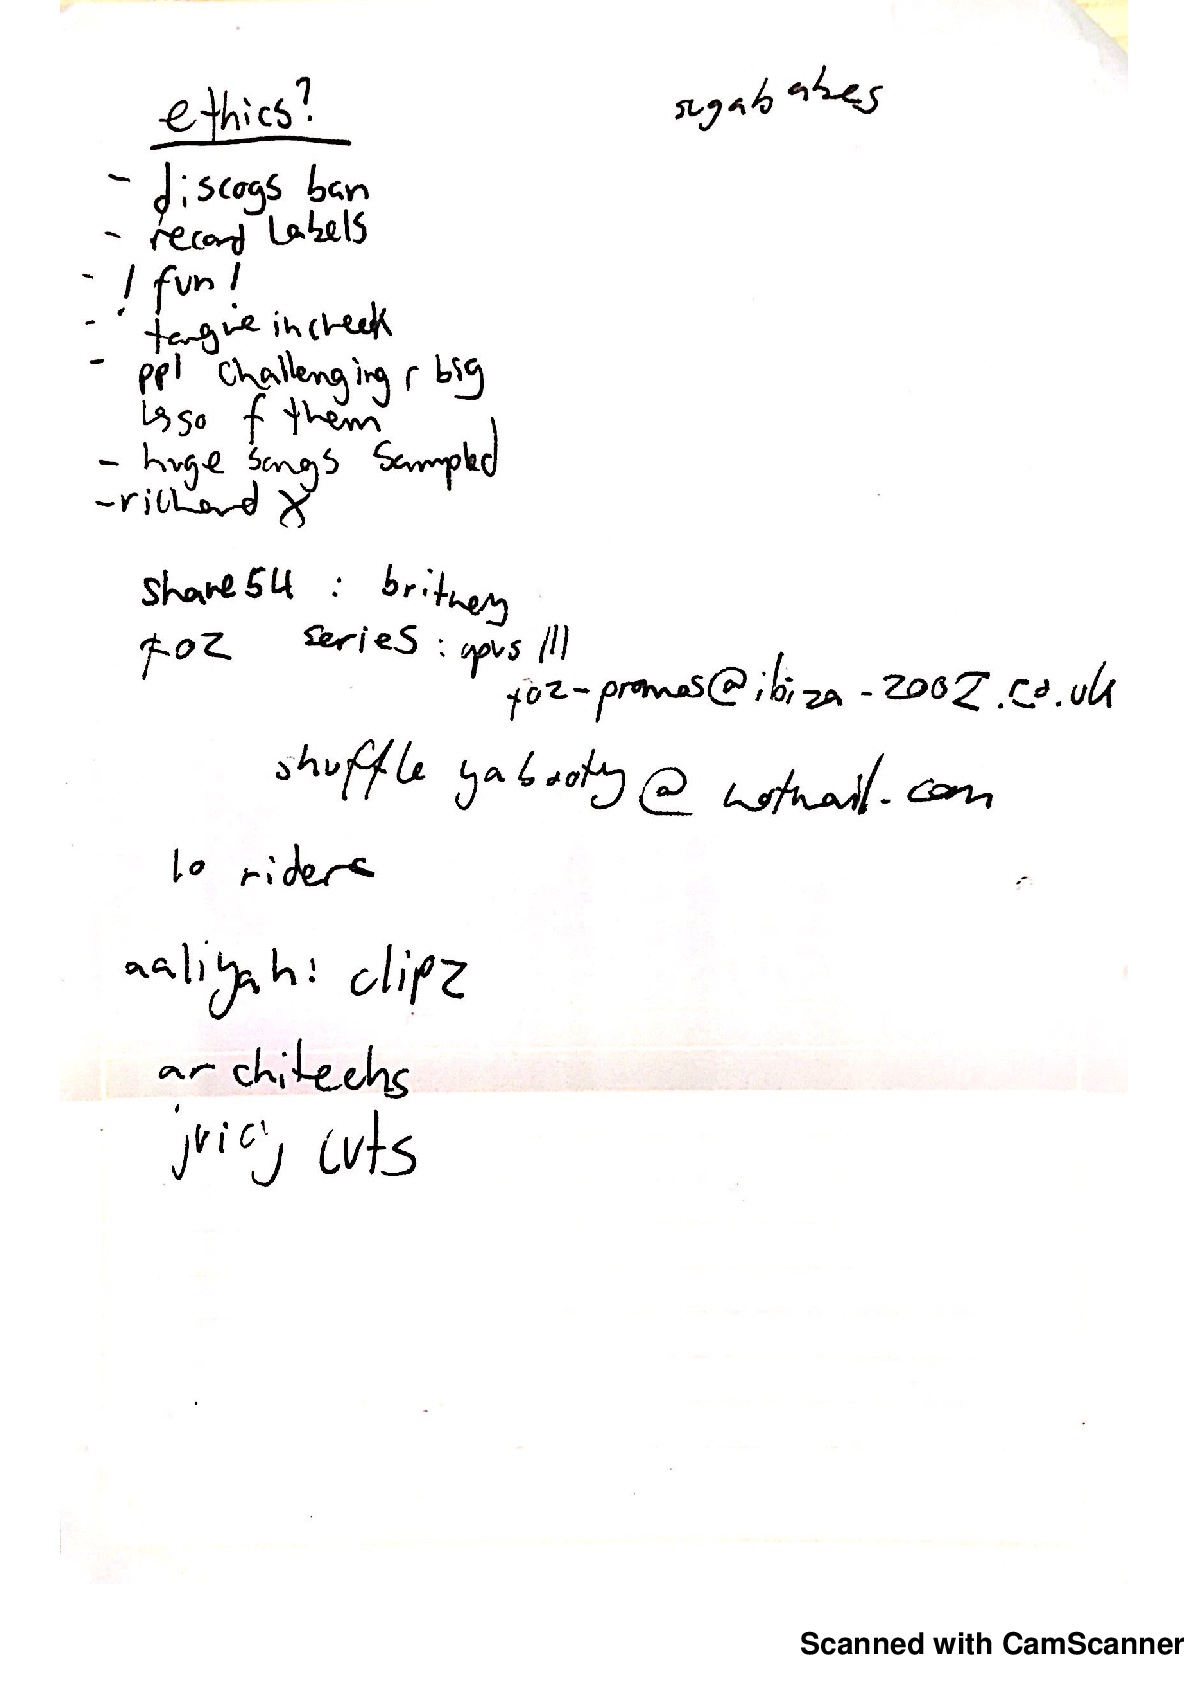 ethics?
sugababes
- discogs ban
- record labels
- ! fun !
- tongue in cheek
- ppl challenging r big
f them
- huge songs sampled
- richard X
share 54 : britney
series : opus III
-promos@ibiza-2002.co.uk
shuffle yabooty@hotmail.com
lo riders
aaliyah: clipz
architechs
juicy cuts
Scanned with CamScanner